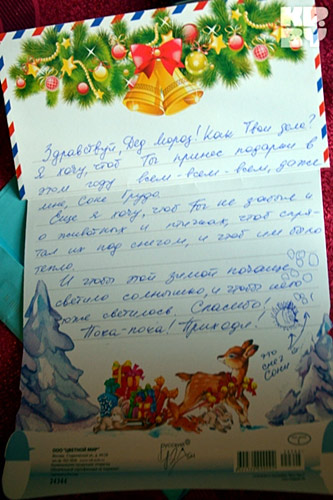 KP
BY
Здравствуй Дед мороз! Как Твои дела?
Я хочу, чтоб Ты принес подарки в
этом году всем-всем-всем, даже
мне, Соне
Еще я хочу, чтоб Ты не забыл и
о животных и птичках, чтоб спря-
тал их под снегом, и чтоб им было
тепло.
И чтобы этой зимой почаще
светило солнышко, и чтобы небо
тоже светилось. Спасибо!
Пока-пока! Приходи!
это
снег
Сони
ООО "ЦВЕТНОЙ МИР"
русский
24344